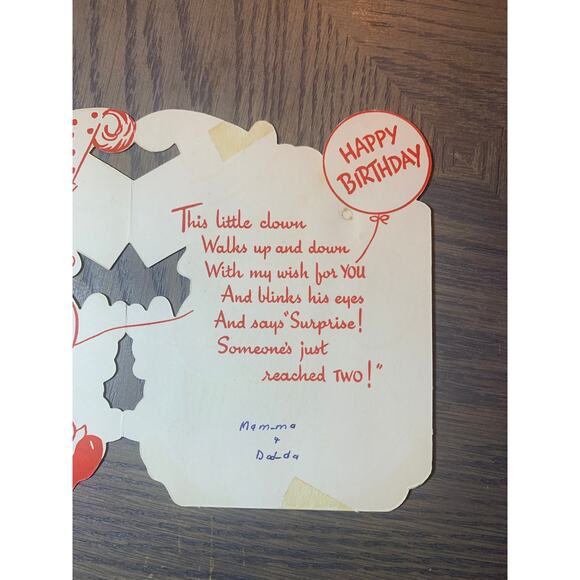 HAPPY
BIRTHDAY
This little clown
Walks up and down
With my wish for YOU
And blinks his eyes
And says "Surprise!
Someone's just
reached TWO!"
Mam-ma
&
Dad-da